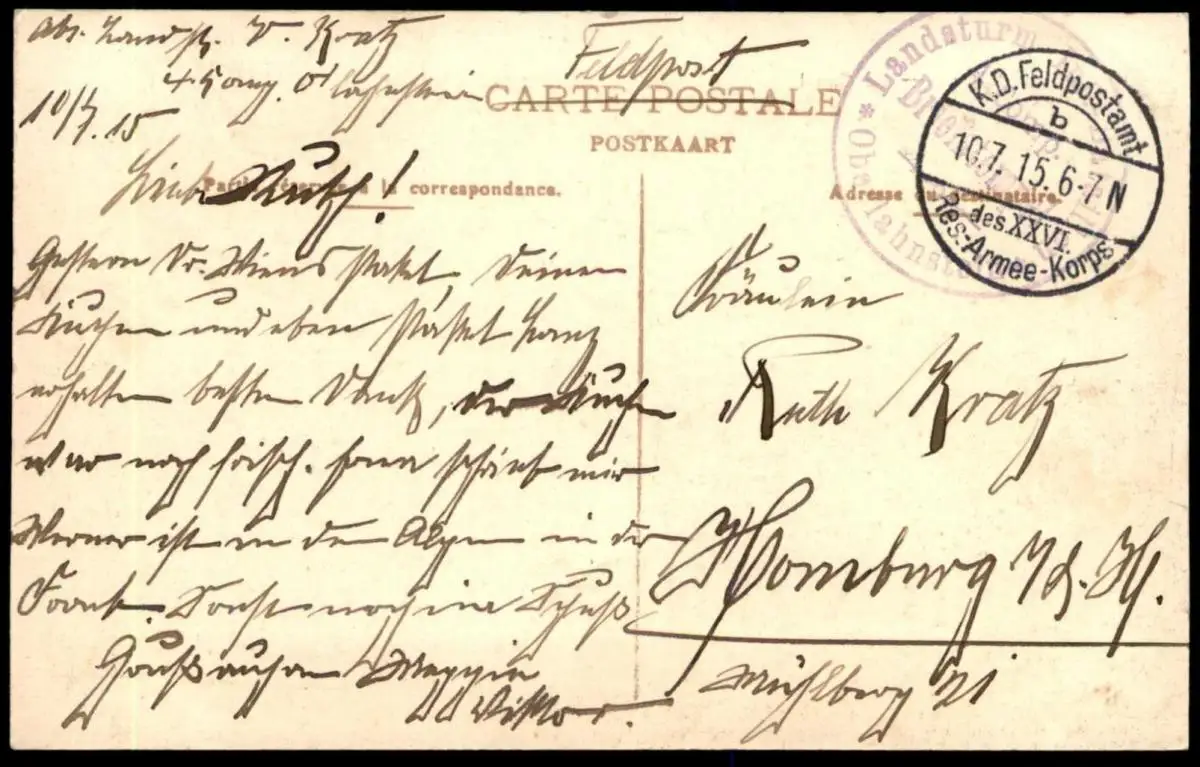 Abs. Landst. V. Kratz
4 Komp. Olahnstein
10/7. 15
Feldpost
CARTE POSTALE
POSTKAART
Partie réservée à la correspondance.
Adresse du destinataire.
* Landsturm
Oberlahnstein
K.D. Feldpostamt
b
10.7. 15. 6-7 N
des XXVI.
Res.-Armee-Korps
Liebe Ruth!
Gestern Dr. Wiens Paket, Deinen
Kuchen und eben Paket
erhalten besten Dank, der Kuchen
war noch frisch. schrieb mir
Werner ist in den Alpen in der
Front. Sonst noch im
Gruß auch an
Viktor.
Fräulein
Ruth Kratz
Homburg v/d. H.
Mühlberg 21